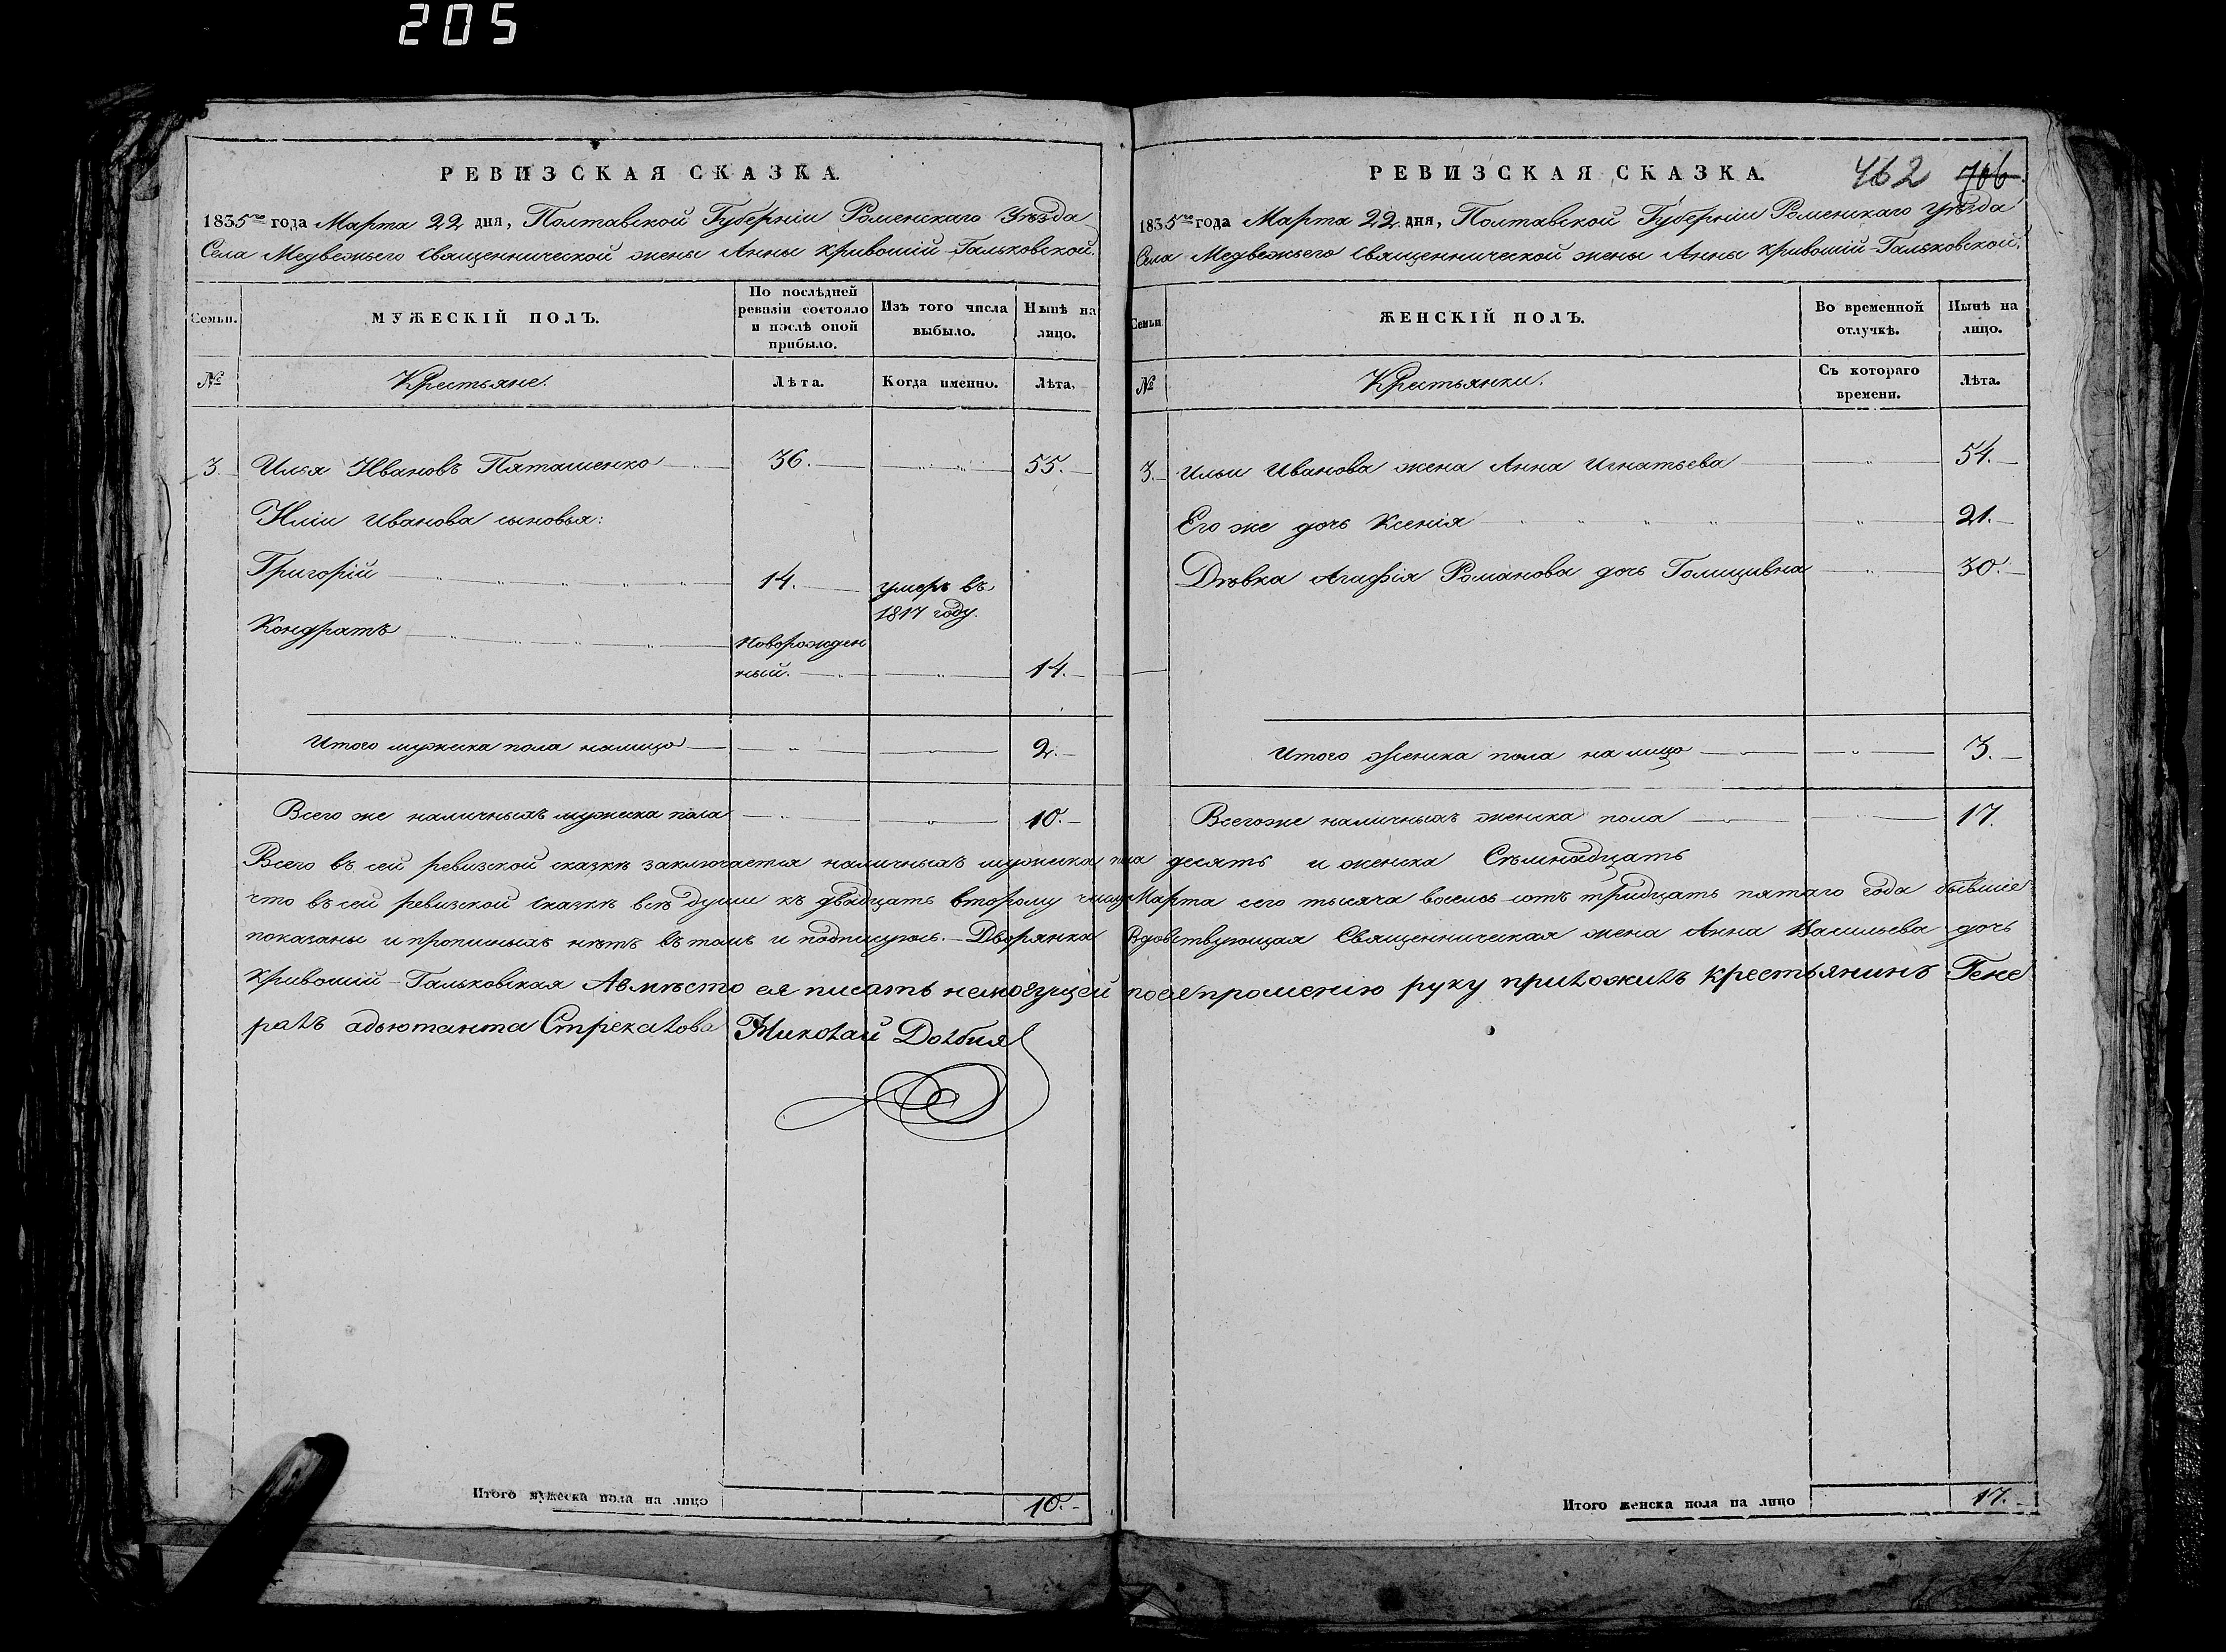 205
РЕВИЗСКАЯ СКАЗКА
1835го года Марта 22 дня, Полтавской Губерніи Роменскаго Уѣзда
Села Медвежьего Священнической жены Анны Кривошій-Гальковской.
Семьи.
МУЖЕСКІЙ ПОЛЪ.
По послѣдней ревизіи состояло и послѣ оной прибыло.
Изъ того числа выбыло.
Нынѣ на лицо.
№
Крестьяне.
Лѣта.
Когда именно.
Лѣта.
3. Илья Ивановъ 36. 55.
Иліи Иванова сыновья:
Григорій 14. умеръ въ
1817 году.
Кондратъ Новорожден
ный. 14.
Итого мужеска пола налицо 2.
Всего же наличныхъ мужеска пола 10.
РЕВИЗСКАЯ СКАЗКА. 462 706
1835го года Марта 22 дня, Полтавской Губерніи Роменскаго Уѣзда
Села Медвежьего Священнической жены Анны Кривошій-Гальковской.
Семьи
ЖЕНСКІЙ ПОЛЪ.
Во временной отлучкѣ.
Нынѣ на лицо.
№
Крестьянки.
Съ котораго времени.
Лѣта.
3. Ильи Иванова жена Анна Игнатьева 54.
Его же дочь Ксенія 21.
Дѣвка Агафія Романова дочь 30.
Итого женска пола на лицо 3.
Всего же наличныхъ женска пола 17.
Всего въ сей ревизской сказкѣ заключается наличныхъ мужеска пола десять и женска Сѣмнадцать
что въ сей ревизской сказкѣ всѣ души къ двадцать второму числу Марта сего тысяча восемь сотъ тридцать пятаго года бывшіе
показаны и прописныхъ нѣтъ въ томъ и подписуюсь.- Дворянка Вдовствующая Священническая жена Анна Васильева дочь
Кривошій-Гальковская Авместо ея писать немогущей поея прошенію руку приложилъ крестьянинъ Гене
ралъ адьютанта Стрекалова Николай Довбия
Итого мужеска пола на лицо 10.
Итого женска пола на лицо 17.